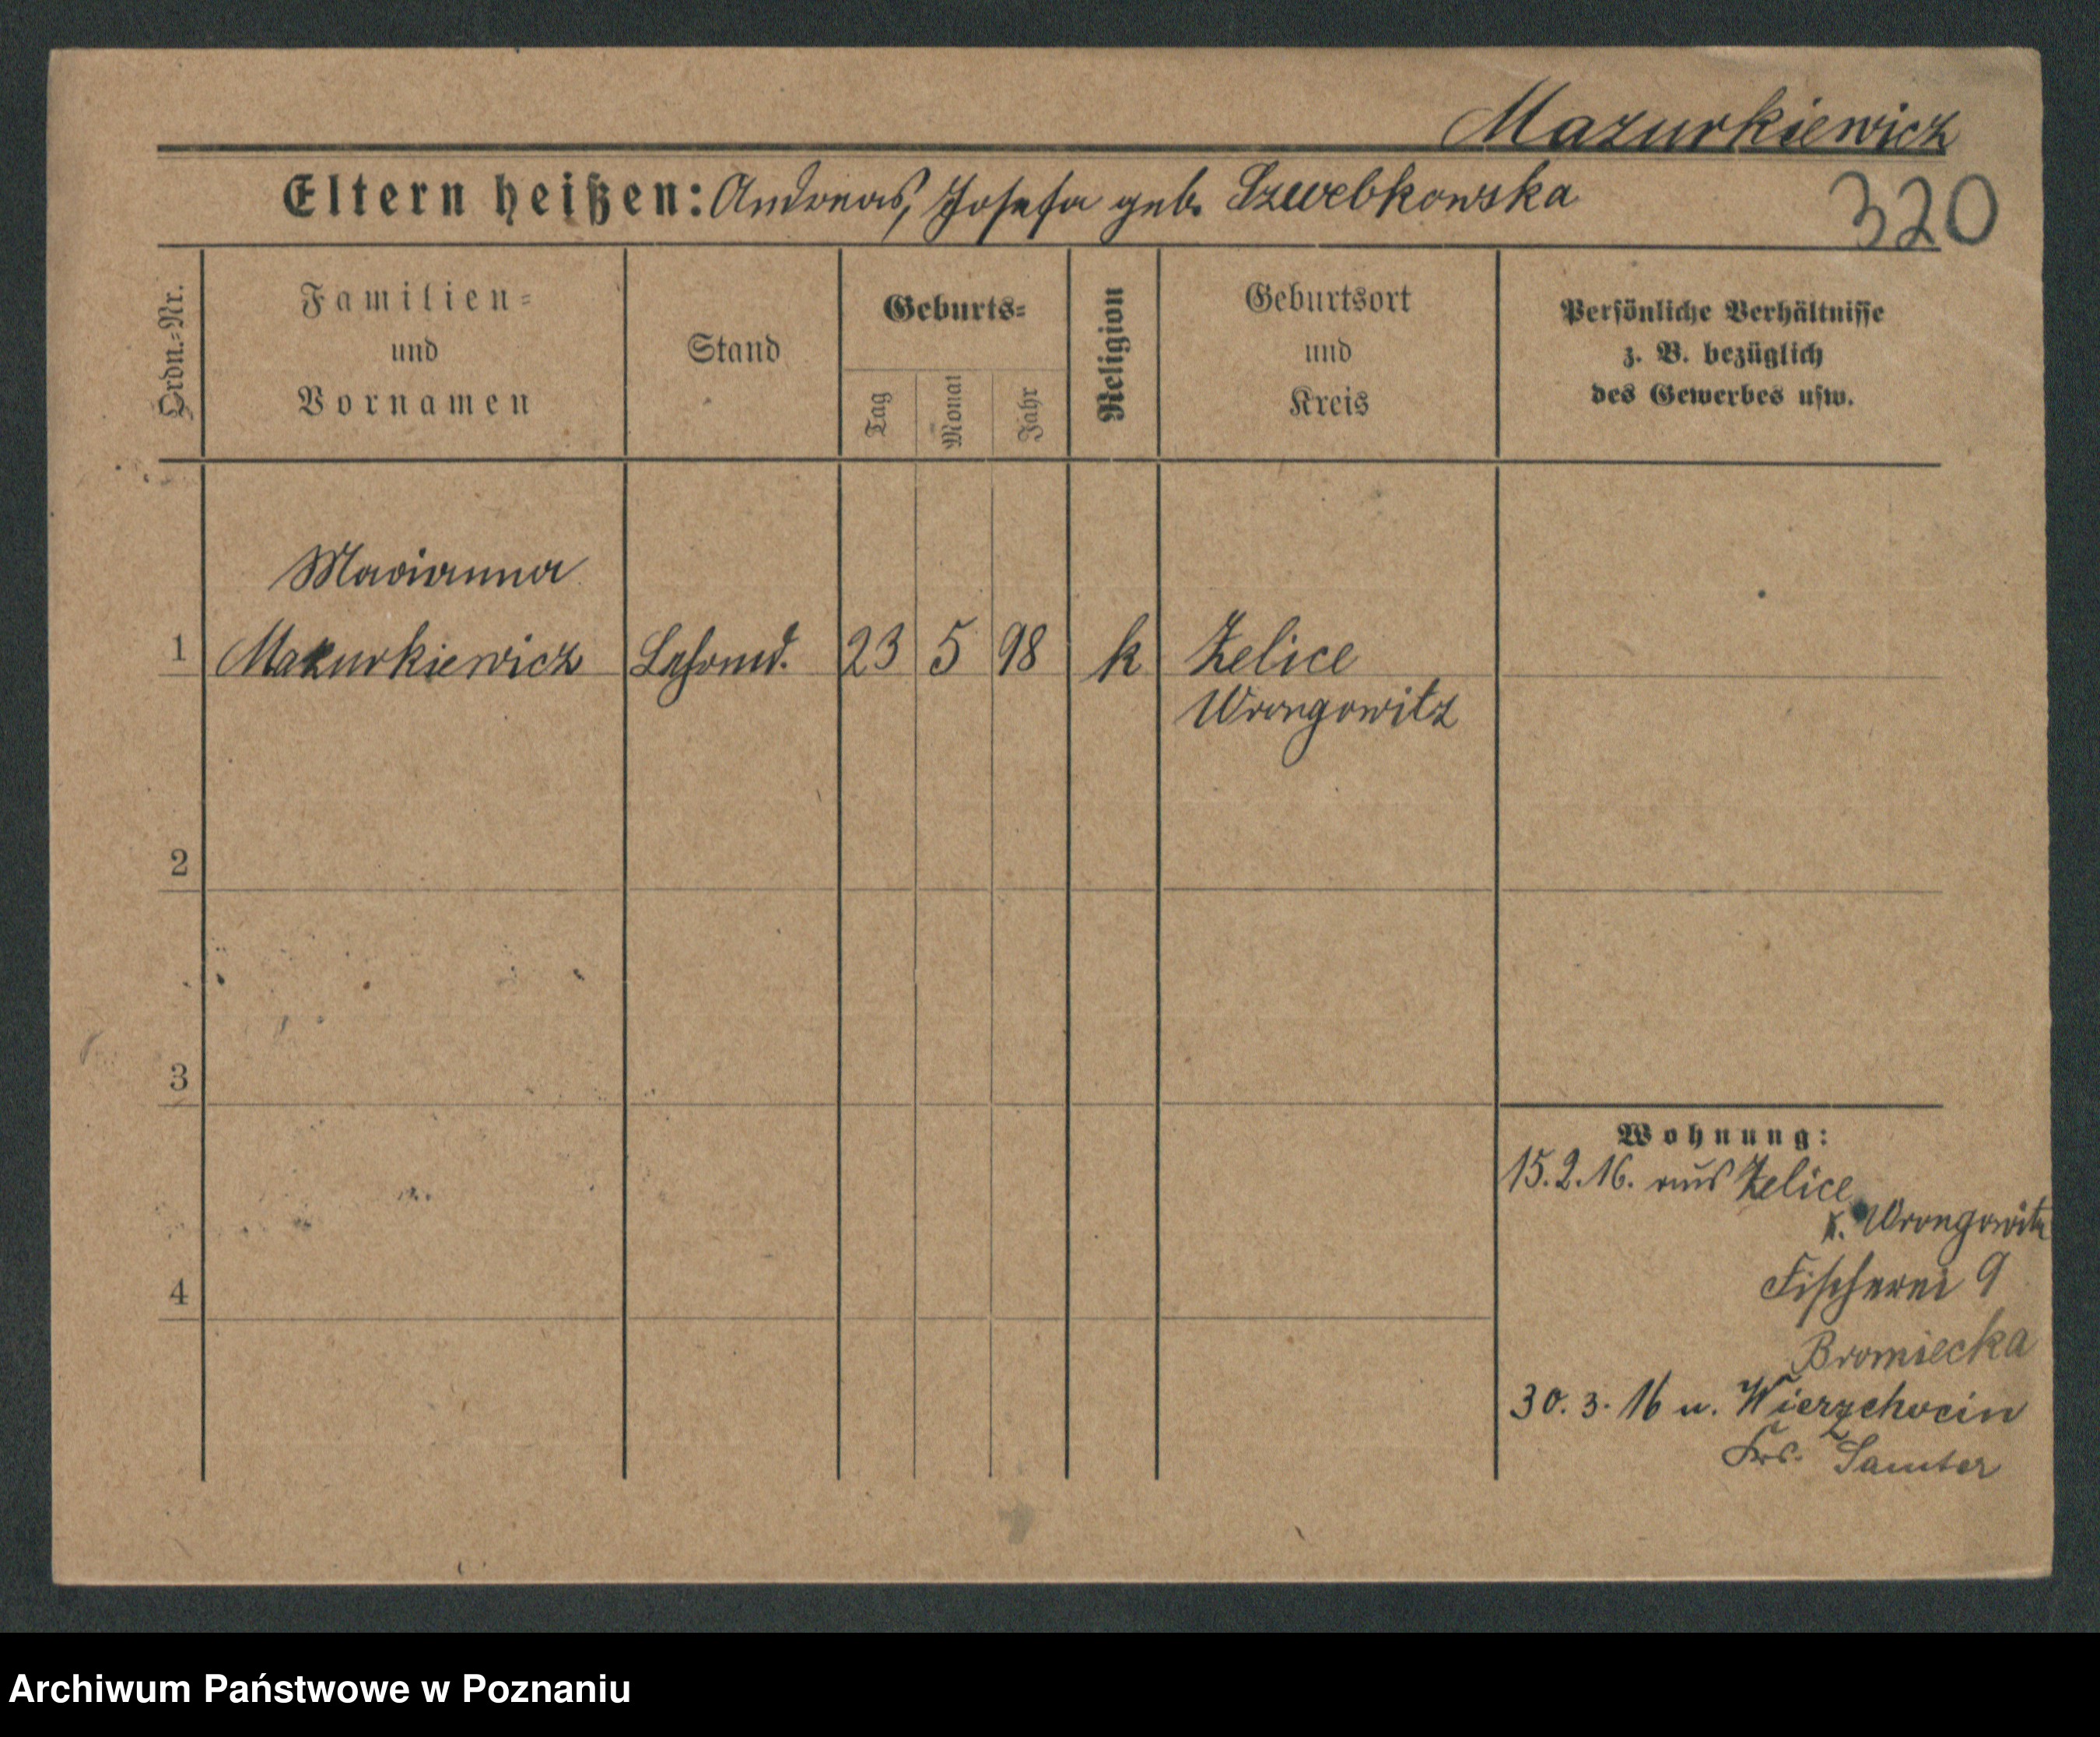 Mazurkiewicz
Eltern heißen: Andreas, Josefa geb. Szwebkowska
320
Ordn.-Nr.
Familien-
und
Vornamen
Stand
Geburts-
Tag
Monat
Jahr
Religion
Geburtsort
und
Kreis
Persönliche Verhältnisse
z. B. bezüglich
des Gewerbes usw.
Marianna
1 Mazurkiewicz 23 5 98 k Zelice
Wrongowitz
2
3
4
Wohnung:
15.2.16. aus Zelice
k. Wrongowitz
Fischerei 9
Bromiecka
30.3.16 n. Wierzchocin
Krs. Samter
Archiwum Państwowe w Poznaniu